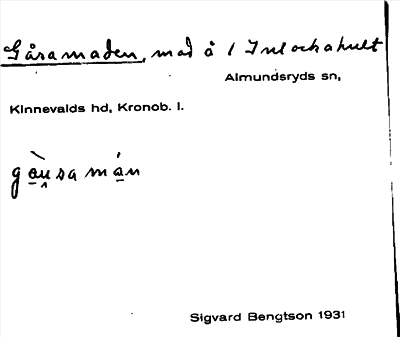 Gåsamaden, mad å / Inlockahult
Almundsryds sn,
Kinnevalds hd, Kronob. l.
gàu sa mán
Sigvard Bengtson 1931